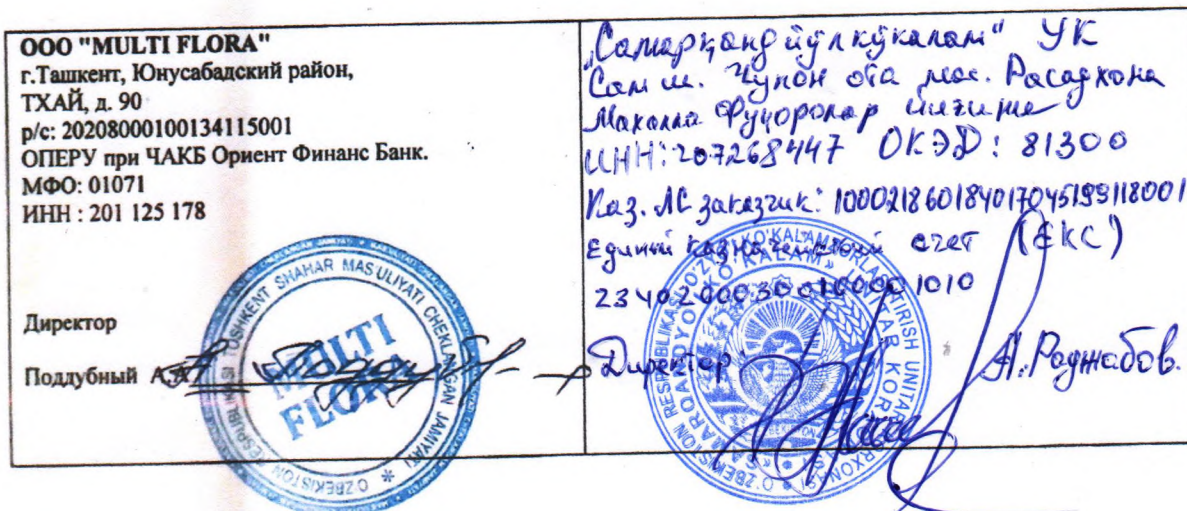 ООО "MULTI FLORA"
г.Ташкент, Юнусабадский район,
ТХАЙ, д. 90
р/с: 20208000100134115001
ОПЕРУ при ЧАКБ Ориент Финанс Банк.
МФО: 01071
ИНН : 201 125 178
Директор
Поддубный А.А
TOSHKENT SHAHAR MAS'ULIYATI CHEKLANGAN JAMIYATI
O'ZBEKISTON RESPUBLIKASI
MULTI
FLORA
"Самарқанд йўл кўкалам" УК
Сам ш. Чупон ота мас. Расадхона
Махалла Фуқоролар йиғини
ИНН: 207268447 ОКЭД: 81300
Каз. ЛС заказчик: 100021860184017045199118001
Единый казначейский счет (ЕКС)
23402000300100001010
Директор
А. Раджабов.